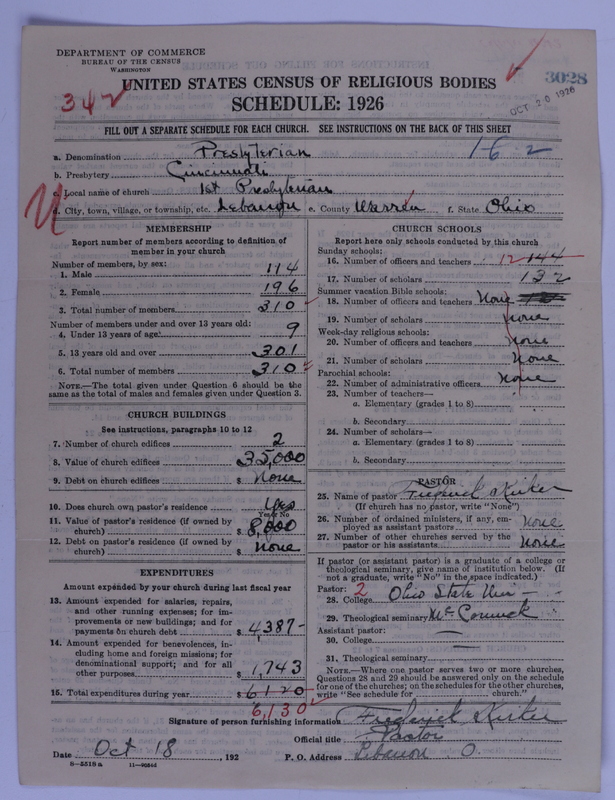 DEPARTMENT OF COMMERCE
BUREAU OF THE CENSUS
WASHINGTON
UNITED STATES CENSUS OF RELIGIOUS BODIES
3028
SCHEDULE: 1926
OCT 20 1926
342
FILL OUT A SEPARATE SCHEDULE FOR EACH CHURCH. SEE INSTRUCTIONS ON THE BACK OF THIS SHEET
a. Denomination Presbyterian 1-6 2
b. Presbytery Cincinnati
c. Local name of church 1st Presbyterian
d. City, town, village, or township, etc. Lebanon e. County Warren f. State Ohio
MEMBERSHIP
Report number of members according to definition of
member in your church
Number of members, by sex:
1. Male 114
2. Female 196
3. Total number of members 310
Number of members under and over 13 years old:
4. Under 13 years of age 9
5. 13 years old and over 301
6. Total number of members 310
NOTE.—The total given under Question 6 should be
same as the total of males and females given under Question 3.
CHURCH BUILDINGS
See instructions, paragraphs 10 to 12
7. Number of church edifices 2
8. Value of church edifices $ 35,000
9. Debt on church edifices $ None
10. Does church own pastor's residence Yes
Yes or No
11. Value of pastor's residence (if owned by
church) $ 8,000
12. Debt on pastor's residence (if owned by
church) $ None
EXPENDITURES
Amount expended by your church during last fiscal year
13. Amount expended for salaries, repairs,
and other running expenses; for im-
provements or new buildings; and for
payments on church debt $ 4387-
14. Amount expended for benevolences, in-
cluding home and foreign missions; for
denominational support; and for all
other purposes $ 1,743
15. Total expenditures during year $ 6120
6,130
CHURCH SCHOOLS
Report here only schools conducted by this church
Sunday schools:
16. Number of officers and teachers 12 144
17. Number of scholars 132
Summer vacation Bible schools:
18. Number of officers and teachers None
19. Number of scholars None
Week-day religious schools:
20. Number of officers and teachers None
21. Number of scholars None
Parochial schools:
22. Number of administrative officers None
23. Number of teachers—
a. Elementary (grades 1 to 8)
b. Secondary
24. Number of scholars—
a. Elementary (grades 1 to 8)
b. Secondary
PASTOR
25. Name of pastor Frederick Kirker
(If church has no pastor, write "None")
26. Number of ordained ministers, if any, em-
ployed as assistant pastors None
27. Number of other churches served by the
pastor or his assistants None
If pastor (or assistant pastor) is a graduate of a college or
theological seminary, give name of institution below. (If
not a graduate, write "No" in the space indicated.)
Pastor: 2
28. College Ohio State Uni -
29. Theological seminary McCormick
Assistant pastor:
30. College
31. Theological seminary
NOTE.—Where one pastor serves two or more churches,
Questions 28 and 29 should be answered only on the schedule
for one of the churches; on the schedules for the other churches,
write "See schedule for church."
Signature of person furnishing information Frederick Kirker
Official title Pastor
Date Oct 18, 192 P. O. Address Lebanon O.
8-5518a